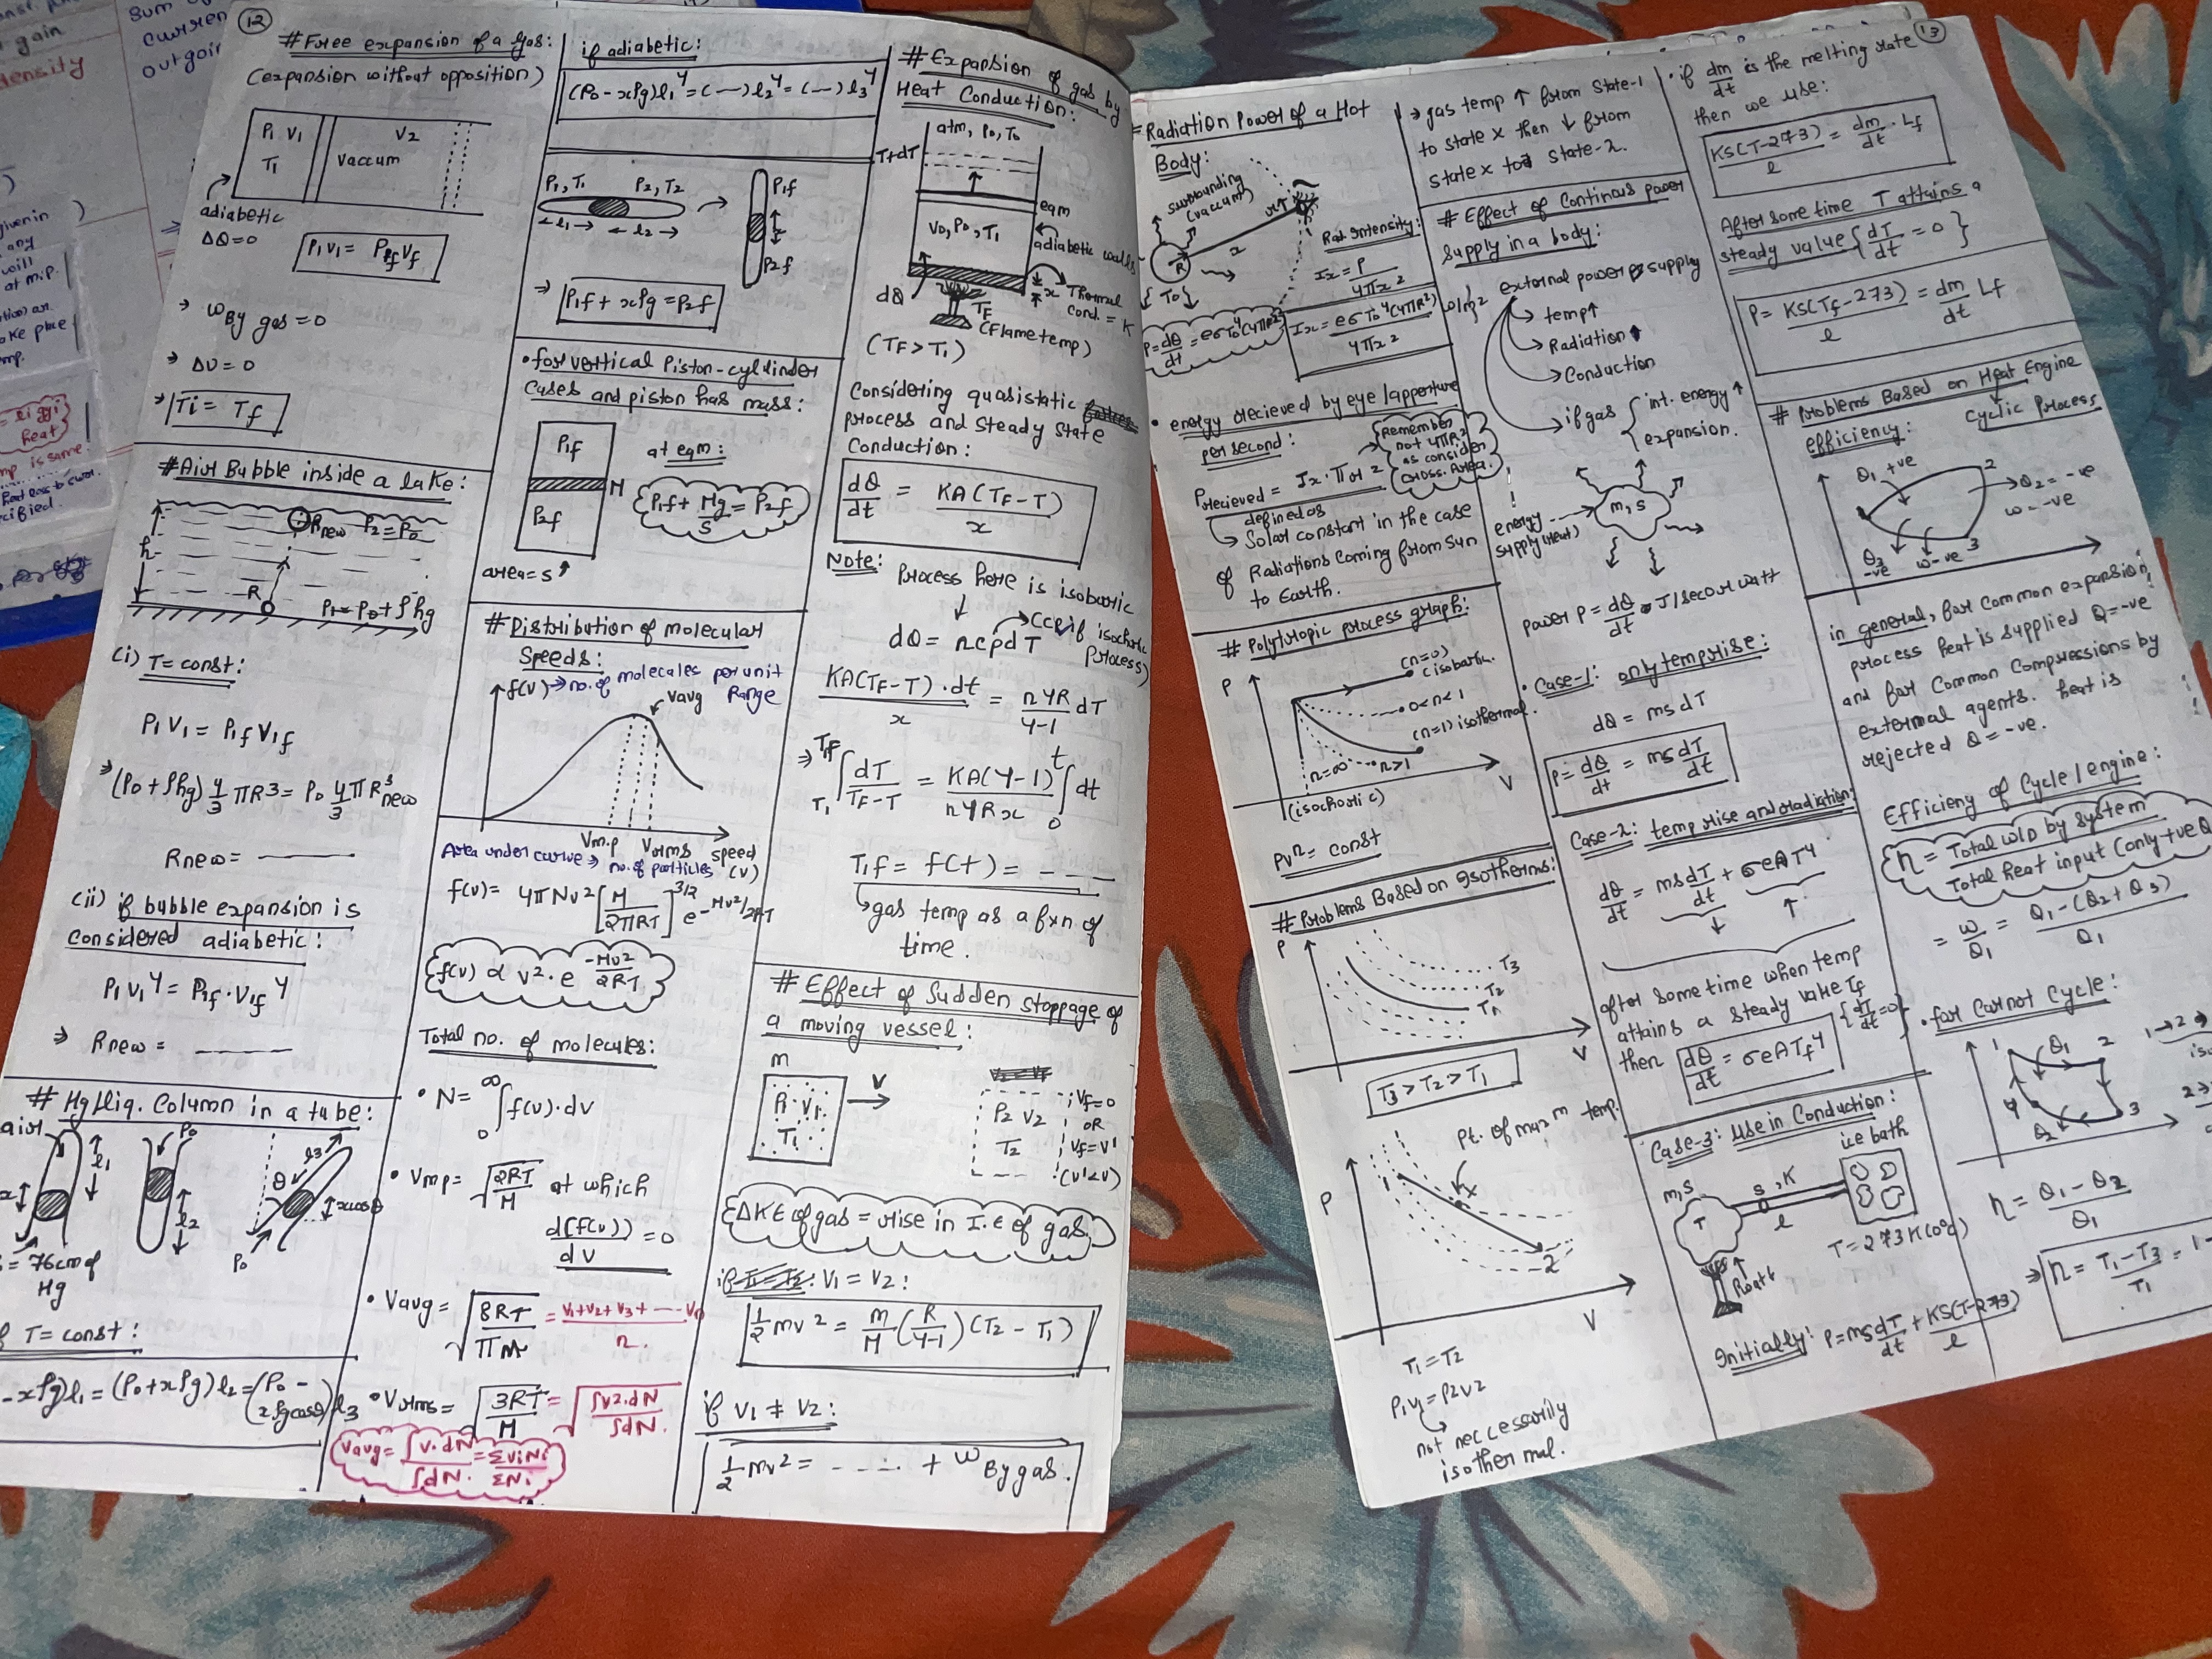 (12)
# Free expansion of a gas:
(expansion without opposition)
P1 V1
T1
vaccum
V2
adiabetic
ΔQ=0
P1V1 = PfVf
→ WBy gas = 0
→ ΔU=0
→ Ti = Tf
# Air Bubble inside a lake:
Rnew P2=P0
h
R
P1 = P0 + ρhg
(i) T = const:
P1V1 = PfVf
⇒ (P0+ρhg) 4/3 πR³ = P0 4/3 πR³new
Rnew = ———
(ii) if bubble expansion is
considered adiabetic:
P1V1^γ = Pf·Vf^γ
⇒ Rnew = - - - -
# Hg/liq. Column in a tube:
P0
l1
l2
l3
θ
xcosθ
= 76cm of
Hg
if T = const:
-xρg)l1 = (P0+xρg)l2 = (P0 -
(xρgcosθ)l3
if adiabetic:
(P0-xρg)l1^γ = (—)l2^γ = (—)l3^γ
P1,T1 P2,T2
←l1→ ←l2→
P1f
P2f
⇒ P1f + xρg = P2f
• for vertical Piston-cylinder
Cases and piston has mass:
P1f
M
P2f
area = S
at eqm:
P1f + Mg/S = P2f
# Distribution of molecular
Speeds:
f(v) → no. of molecules per unit
range
Vavg
Vm.p Vrms speed
(v)
Area under curve ⇒ no. of particles
f(v) = 4πNv² [M/2πRT]^3/2 e^-Mv²/2RT
f(v) ∝ v²·e^-Mv²/2RT
Total no. of molecules:
• N = ∫0^∞ f(v)·dv
• Vmp = √2RT/M at which
d(f(v))/dv = 0
• Vavg = √8RT/πM = v1+v2+v3+----vn/n
• Vrms = √3RT/M = √∫v²·dN/∫dN
Vavg = ∫v·dN/∫dN = ΣviNi/ΣNi
# Expansion of gas by
Heat Conduction:
atm, P0, T0
T+dT
eqm
V0, P0, T1
adiabetic walls
x Thermal
Cond. = K
dQ
TF (Flame temp)
(TF > T1)
Considering quasistatic
process and steady state
Conduction:
dQ/dt = KA(TF-T)/x
Note: Process here is isobaric
dQ = nCpdT
(Cv if isochoric
Process)
KA(TF-T)·dt/x = nγR/γ-1 dT
⇒ ∫T1^Tf dT/TF-T = KA(γ-1)/nγRx ∫0^t dt
T1f = f(t) = - - -
gas temp as a fxn. of
time.
# Effect of Sudden stoppage of
a moving vessel:
m
P1 V1
T1
→ V
P2 V2
T2
Vf=0
or
Vf=V1
(V'<V)
ΔKE of gas = rise in I.E of gas
if V1 = V2:
1/2 mv² = m/M (R/γ-1)(T2-T1)
if V1 ≠ V2:
1/2 mv² = - - - - + WBy gas.
= Radiation Power of a Hot
Body:
Surrounding
(vaccum)
R
T0
x
Rad. Intensity:
Ix = P/4πx²
P = dQ/dt = eσT0⁴(4πR²)
Ix = eσT0⁴(4πR²)/4πx² J/m²
• energy recieved by eye/apperture
per second:
Precieved = Ix·πr²
(remember
not 4πR²
as consider
Cross. Area)
defined as
Solar constant in the case
of Radiations coming from sun
to Earth.
# Polytropic process graph:
P
V
(n=0)
isobaric.
0<n<1
(n=1) isothermal
n>1
n=∞
(isochoric)
PVⁿ = const
# Problems Based on isotherms:
P
V
T3
T2
T1
T3 > T2 > T1
P
V
1
x
2
Pt. of maxm temp.
T1=T2
P1V1 = P2V2
not neccessarily
isothermal.
→ gas temp ↑ from state-1
to state x then ↓ from
state x to state-2.
# Effect of Continous power
supply in a body:
external power supply
→ temp↑
→ Radiation
→ Conduction
→ if gas { int. energy ↑
expansion.
energy
supply (Heat)
m,s
power P = dQ/dt J/sec or watt
• Case-1: only temp rise:
dQ = msdT
P = dQ/dt = msdT/dt
Case-2: temp rise and radiation:
dQ/dt = msdT/dt + σeAT⁴
after some time when temp
attains a steady value Tf
then dQ/dt = σeATf⁴ {dT/dt=0}
Case-3: Use in Conduction:
ice bath
m,s
T
S,K
l
T = 273K (0°C)
Heat
Initially: P = msdT/dt + KS(T-273)/l
(13)
• if dm/dt is the melting rate
then we use:
KS(T-273)/l = dm/dt · Lf
After some time T attains a
steady value {dT/dt = 0}
P = KS(Tf-273)/l = dm/dt Lf
# Problems Based on Heat Engine
efficiency: Cyclic Process
Q1 +ve
2
Q2 = -ve
W = -ve
3
W -ve
Q3
-ve
in general, for common expansion
process heat is supplied Q=-ve
and for common Compressions by
external agents. heat is
rejected Q = -ve.
Efficieny of Cycle/engine:
η = Total W.D by system/Total heat input (only +ve Q)
= W/Q1 = Q1-(Q2+Q3)/Q1
• for Carnot Cycle:
1
Q1
2
3
4
Q2
1→2
η = Q1-Q2/Q1
⇒ η = T1-T3/T1 = 1-